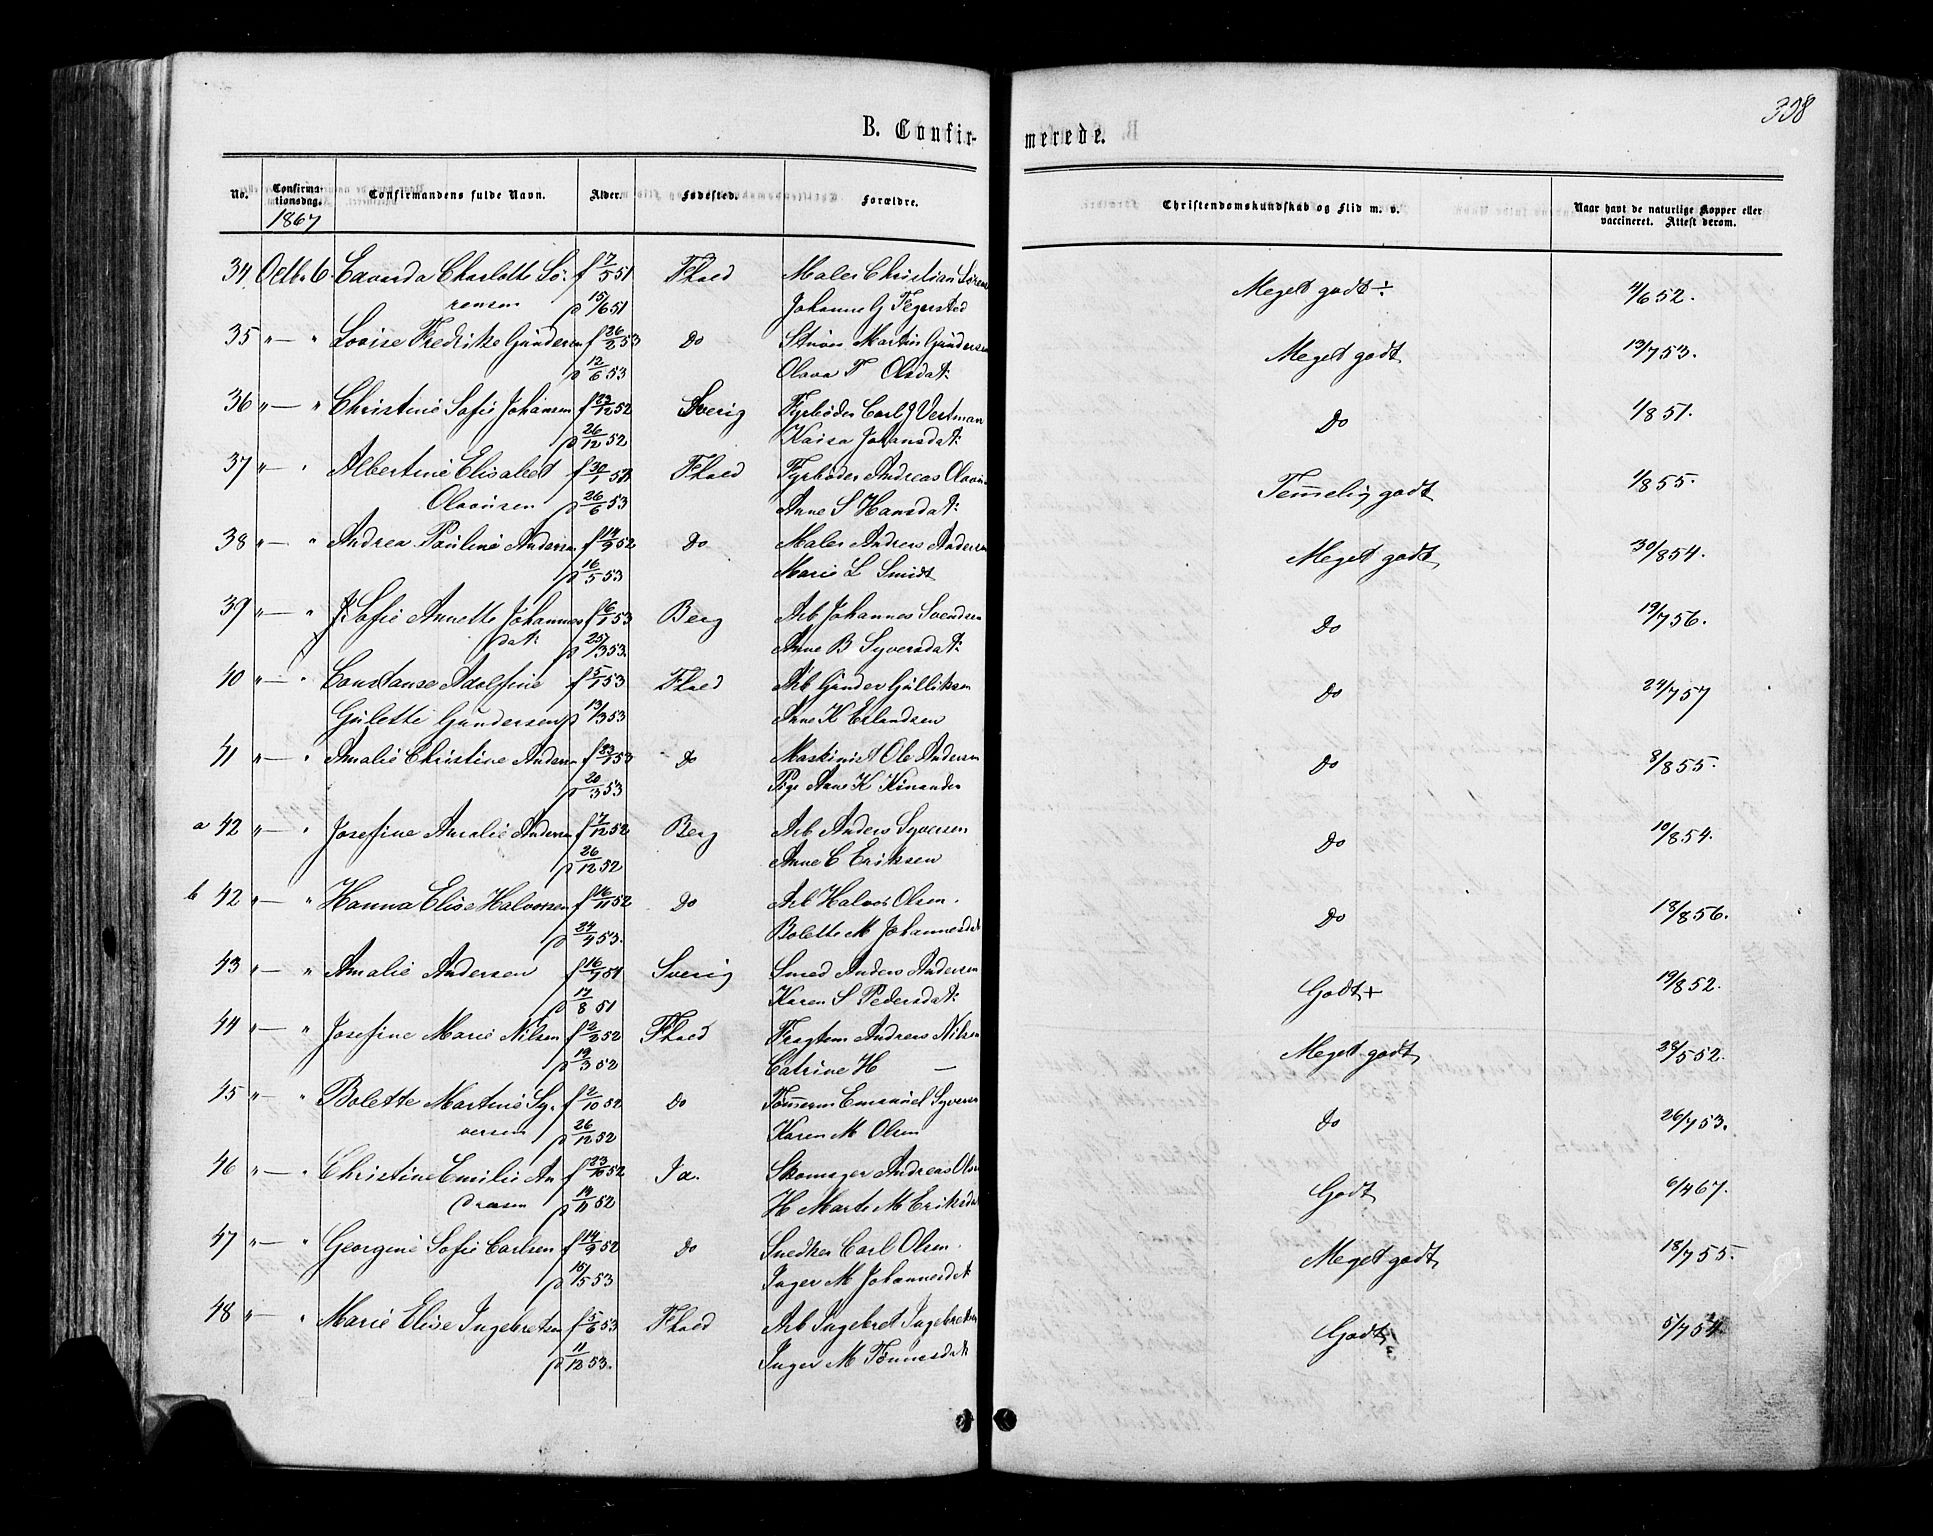 338
B. Confir-
merede.
No.
Confirma-
tionsdag.
1867
Confirmandens fulde Navn.
Alder.
Fødested.
Forældre.
Christendomskundskab og Flid m. v.
Naar havt de naturlige Kopper eller
vaccineret. Attest derom.
34 Octbr 6. Charlotte Sö- f 7/5 51 Fhald Maler Christian Sörens Meget godt ÷ 4/6 52.
rensen p 15/6 51 Johanne G Tegnsted
35 " — " Lovise Fredrikke Gundersen f 26/2 53 Do Martin Gundersen Meget godt 13/7 53.
p 12/6 53 Olava T Olsdat:
36 " — " Christine Sofie Johansen f 23/12 52 Sverig Fyrböder Carl J Vestman Do 1/8 51.
p 26/12 52 Kaisa Johansdat:
37 " — " Albertine Elisabet f 30/1 53 Fhald Fyrböder Andreas Olavus Temmelig godt 1/8 55.
Olavusen p 26/6 53 Anne S Hansdat:
38 " — " Andrea Pauline Andersen f 14/9 52 Do Maler Andreas Andersen Meget godt 30/8 54.
p 16/5 53 Marie L Smidt
39 " — " Sofie Annette Johannes f 6/1 53 Berg Arb Johannes Svendsen Do 19/7 56.
dat: p 25/3 53. Anne B Syversdat:
40 " — " Constanse Adolfine f 5/1 53 Fhald Arb Gunder Gulliksen Do 24/7 57
Gulette Gundersen p 13/3 53 Anne K Erlandsen
41 " — " Amalie Christine Andersen f 23/1 53 Do Maskinist Ole Andersen Do 8/8 55.
p 20/3 53 Pige Anne K Kinander
a 42 " — " Josefine Amalie Andersen f 7/12 52 Berg Arb Anders Syversen Do 10/8 54.
p 26/12 52 Anne C Eriksen
b 42 " — " Hanna Elise Halvorsen f 16/11 52 Do Arb Halvor Olsen. Do 18/8 56.
p 24/4 53. Bolette M Johannesdat
43 " — " Amalie Andersen f 16/7 51 Sverig Smed Anders Andersen Godt + 19/8 52.
p 17/8 51 Karen S Pedersdat:
44 " — " Josefine Marie Nilsen f 2/2 52 Fhald Fragtem Andreas Nilsen Meget godt 28/5 52.
p 19/3 52 Catrine H —
45 " — " Bolette Martine Sy- f 2/10 52 Do Tömmerm Emanuel Syversen Do 26/7 53.
versen p 26/12 52 Karen M Olsen
46 " — " Christine Emilie An f 23/10 52 Skomager Andreas Olsen Godt 6/4 67.
dreasen p 14/11 52 H Marte M Eriksdat
47 " — " Georgine Sofie Carlsen f 14/9 52 Do Snedker Carl Olsen. Meget godt 18/7 55.
p 15/5 53 Inger M Johannesdat
48 " — " Marie Elise Ingebretsen f 5/6 53 Fhald Arb Ingebret Ingebretsen Godt 5/7 54.
p 11/12 53. Inger M Tönnesdat